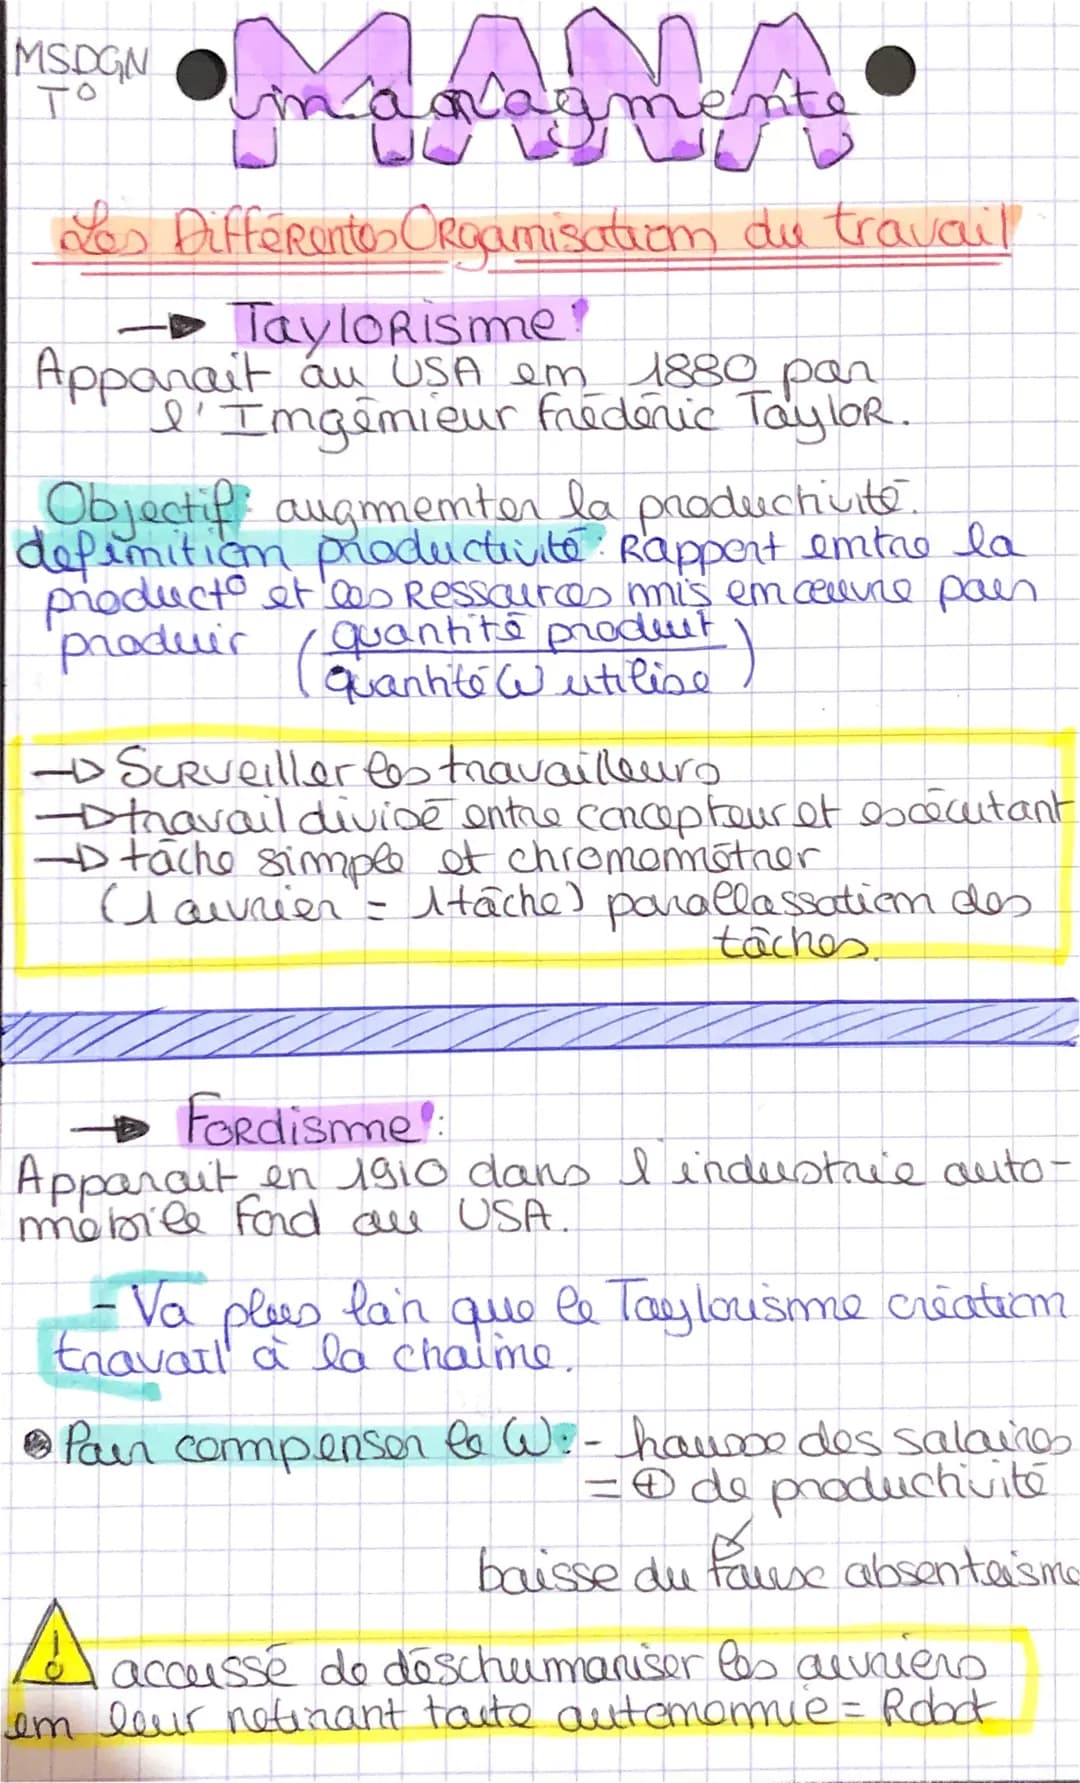 MSDGN
T°
MANA
management
Les Différentes Organisation du travail
→ Taylorisme :
Apparait au USA en 1880 par
l'Ingénieur Frédéric Taylor.
Objectif : augmenter la productivité.
definition productivité : Rapport entre la
product° et les Ressources mis en œuvre pour
produir (quantité produit
quantité W utilise)
→ Surveiller les travailleurs
→ travail divisé entre concepteur et exécutant
→ tâche simple et chronométrer
(1 ouvrier = 1 tâche) parallassation des
tâches.
→ Fordisme :
Apparait en 1910 dans l'industrie auto-
mobile Ford au USA.
- Va plus loin que le Taylorisme création
travail à la chaine.
• Pour compenser le W : - hausse des salaires
= + de productivité
baisse du taux absenteisme
! accussé de déschumaniser les ouvriers
en leur retirant toute autonomie = Robot